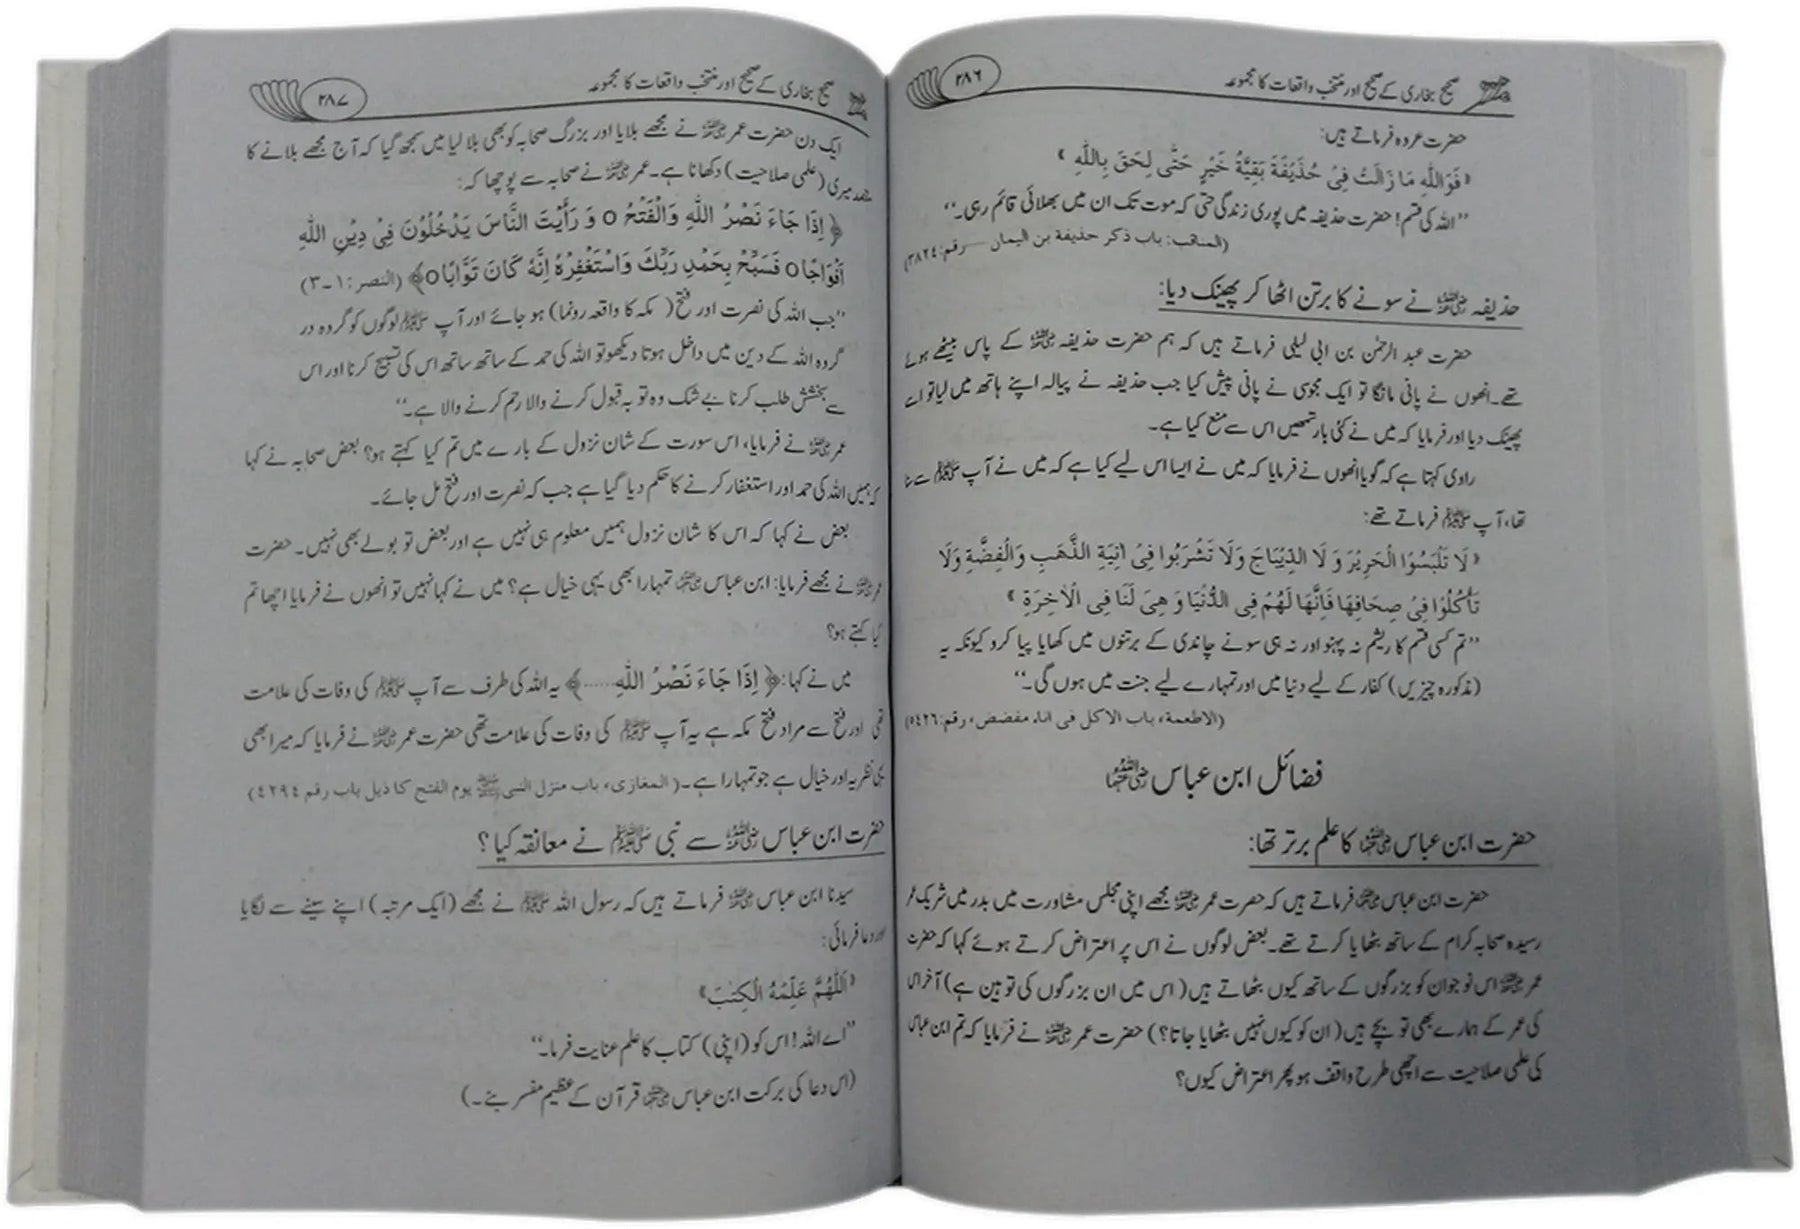 صحیح بخاری کے صحیح اور منتخب واقعات کا مجموعہ
۲۸۶
حضرت عروہ فرماتے ہیں:
«فَوَاللّٰهِ مَا زَالَتْ فِیْ حُذَيْفَةَ بَقِيَّةُ خَيْرٍ حَتّٰی لَحِقَ بِاللّٰهِ»
’’اللہ کی قسم! حضرت حذیفہ میں پوری زندگی حتی کہ موت تک ان میں بھلائی قائم رہی۔‘‘
(المناقب: باب ذکر حذیفة بن الیمان — رقم: ۳۸۲۴)
حذیفہ رضی اللہ عنہ نے سونے کا برتن اٹھا کر پھینک دیا:
حضرت عبد الرحمٰن بن ابی لیلی فرماتے ہیں کہ ہم حضرت حذیفہ رضی اللہ عنہ کے پاس بیٹھے ہوئے
تھے۔ انھوں نے پانی مانگا تو ایک مجوسی نے پانی پیش کیا جب حذیفہ نے پیالہ اپنے ہاتھ میں لیا تو اسے
پھینک دیا اور فرمایا کہ میں نے کئی بار تمھیں اس سے منع کیا ہے۔
راوی کہتا ہے کہ گویا انھوں نے فرمایا کہ میں نے ایسا اس لیے کیا ہے کہ میں نے آپ ﷺ سے سنا
تھا، آپ ﷺ فرماتے تھے:
«لَا تَلْبَسُوا الْحَرِيْرَ وَ لَا الدِّيْبَاجَ وَلَا تَشْرَبُوا فِیْ اٰنِيَةِ الذَّهَبِ وَالْفِضَّةِ وَلَا
تَأْكُلُوْا فِیْ صِحَافِهَا فَاِنَّهَا لَهُمْ فِی الدُّنْيَا وَ هِیَ لَنَا فِی الْاٰخِرَةِ»
’’تم کسی قسم کا ریشم نہ پہنو اور نہ ہی سونے چاندی کے برتنوں میں کھایا پیا کرو کیونکہ یہ
(مذکورہ چیزیں) کفار کے لیے دنیا میں اور تمہارے لیے جنت میں ہوں گی۔‘‘
(الاطعمة، باب الاکل فی اناء مفضض، رقم: ۵۴۲۶)
فضائل ابن عباس رضی اللہ عنہما
حضرت ابن عباس رضی اللہ عنہما کا علم برتر تھا:
حضرت ابن عباس رضی اللہ عنہما فرماتے ہیں کہ حضرت عمر رضی اللہ عنہ مجھے اپنی مجلس مشاورت میں بدر میں شریک عمر
رسیدہ صحابہ کرام کے ساتھ بٹھایا کرتے تھے۔ بعض لوگوں نے اس پر اعتراض کرتے ہوئے کہا کہ حضرت
عمر رضی اللہ عنہ اس نوجوان کو بزرگوں کے ساتھ کیوں بٹھاتے ہیں (اس میں ان بزرگوں کی توہین ہے) آخر اس
کی عمر کے ہمارے بھی تو بچے ہیں (ان کو کیوں نہیں بٹھایا جاتا؟) حضرت عمر رضی اللہ عنہ نے فرمایا کہ تم ابن عباس
کی علمی صلاحیت سے اچھی طرح واقف ہو پھر اعتراض کیوں؟
صحیح بخاری کے صحیح اور منتخب واقعات کا مجموعہ
۲۸۷
ایک دن حضرت عمر رضی اللہ عنہ نے مجھے بلایا اور بزرگ صحابہ کو بھی بلا لیا میں سمجھ گیا کہ آج مجھے بلانے کا
مقصد میری (علمی صلاحیت) دکھانا ہے۔ عمر رضی اللہ عنہ نے صحابہ سے پوچھا کہ:
﴿اِذَا جَاءَ نَصْرُ اللّٰهِ وَالْفَتْحُ o وَ رَأَيْتَ النَّاسَ يَدْخُلُوْنَ فِیْ دِيْنِ اللّٰهِ
اَفْوَاجًا o فَسَبِّحْ بِحَمْدِ رَبِّكَ وَاسْتَغْفِرْهُ اِنَّهٗ كَانَ تَوَّابًا o﴾ (النصر: ۱۔۳)
’’جب اللہ کی نصرت اور فتح (مکہ کا واقعہ رونما) ہو جائے اور آپ ﷺ لوگوں کو گروہ در
گروہ اللہ کے دین میں داخل ہوتا دیکھو تو اللہ کی حمد کے ساتھ ساتھ اس کی تسبیح کرنا اور اس
سے بخشش طلب کرنا بے شک وہ توبہ قبول کرنے والا رحم کرنے والا ہے۔‘‘
عمر رضی اللہ عنہ نے فرمایا، اس سورت کے شان نزول کے بارے میں تم کیا کہتے ہو؟ بعض صحابہ نے کہا
کہ ہمیں اللہ کی حمد اور استغفار کرنے کا حکم دیا گیا ہے جب کہ نصرت اور فتح مل جائے۔
بعض نے کہا کہ اس کا شان نزول ہمیں معلوم ہی نہیں ہے اور بعض تو بولے بھی نہیں۔ حضرت
عمر رضی اللہ عنہ نے مجھے فرمایا: ابن عباس رضی اللہ عنہما تمہارا بھی یہی خیال ہے؟ میں نے کہا نہیں تو انھوں نے فرمایا اچھا تم
کیا کہتے ہو؟
میں نے کہا: ﴿اِذَا جَاءَ نَصْرُ اللّٰهِ......﴾ یہ اللہ کی طرف سے آپ ﷺ کی وفات کی علامت
تھی اور فتح سے مراد فتح مکہ ہے یہ آپ ﷺ کی وفات کی علامت تھی حضرت عمر رضی اللہ عنہ نے فرمایا کہ میرا بھی
یہی نظریہ اور خیال ہے جو تمہارا ہے۔ (المغازی، باب منزل النبی ﷺ یوم الفتح کا ذیل باب رقم ۴۲۹۴)
حضرت ابن عباس رضی اللہ عنہ سے نبی ﷺ نے معانقہ کیا؟
سیدنا ابن عباس رضی اللہ عنہما فرماتے ہیں کہ رسول اللہ ﷺ نے مجھے (ایک مرتبہ) اپنے سینے سے لگایا
اور دعا فرمائی:
«اَللّٰهُمَّ عَلِّمْهُ الْكِتٰبَ»
’’اے اللہ! اس کو (اپنی) کتاب کا علم عنایت فرما۔‘‘
(اس دعا کی برکت ابن عباس رضی اللہ عنہما قرآن کے عظیم مفسر بنے۔)